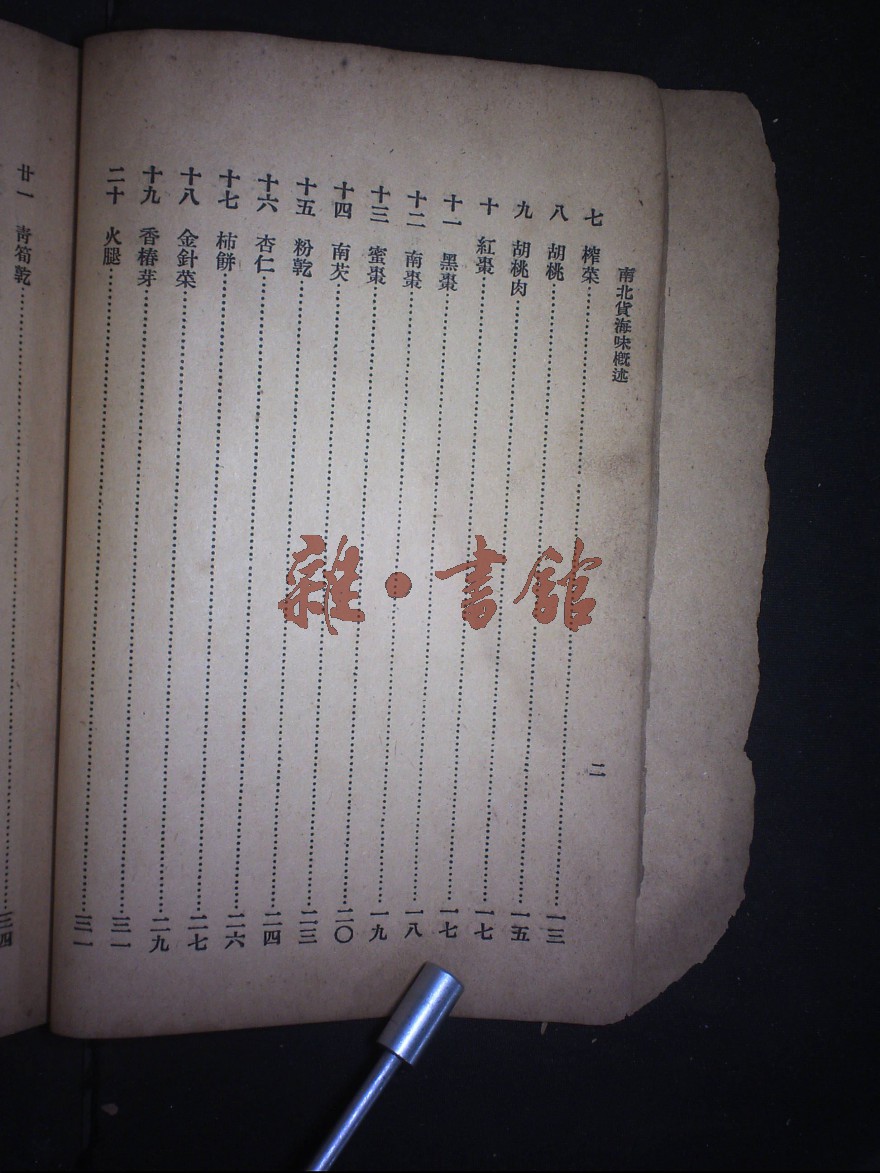 南北貨海味概述 二
七 榨菜……一三
八 胡桃……一五
九 胡桃肉……一七
十 紅棗……一七
十一 黑棗……一八
十二 南棗……一九
十三 蜜棗……二〇
十四 南芡……二三
十五 粉乾……二四
十六 杏仁……二六
十七 柿餅……二七
十八 金針菜……二九
十九 香椿芽……三一
二十 火腿……三一
廿一 青筍乾……三四
雜·書館